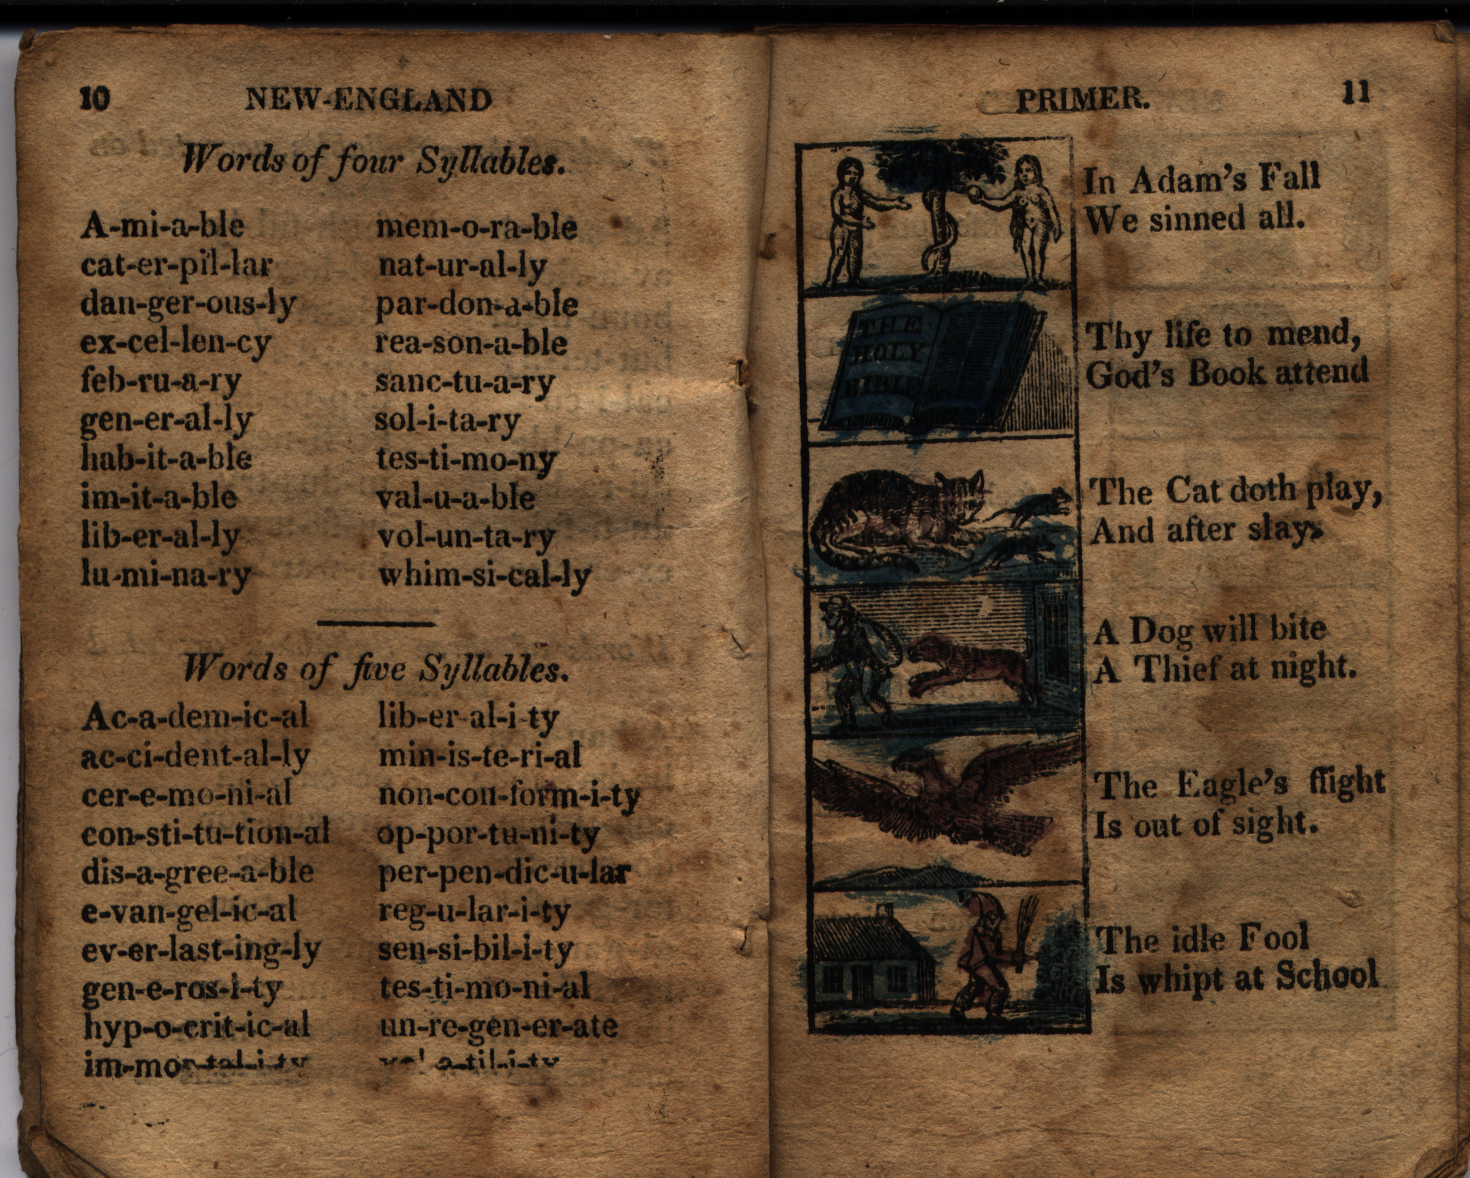 10 NEW-ENGLAND
Words of four Syllables.
A-mi-a-ble mem-o-ra-ble
cat-er-pil-lar nat-ur-al-ly
dan-ger-ous-ly par-don-a-ble
ex-cel-len-cy rea-son-a-ble
feb-ru-a-ry sanc-tu-a-ry
gen-er-al-ly sol-i-ta-ry
hab-it-a-ble tes-ti-mo-ny
im-it-a-ble val-u-a-ble
lib-er-al-ly vol-un-ta-ry
lu-mi-na-ry whim-si-cal-ly
Words of five Syllables.
Ac-a-dem-ic-al lib-er-al-i-ty
ac-ci-dent-al-ly min-is-te-ri-al
cer-e-mo-ni-al non-con-form-i-ty
con-sti-tu-tion-al op-por-tu-ni-ty
dis-a-gree-a-ble per-pen-dic-u-lar
e-van-gel-ic-al reg-u-lar-i-ty
ev-er-last-ing-ly sen-si-bil-i-ty
gen-e-ros-i-ty tes-ti-mo-ni-al
hyp-o-crit-ic-al un-re-gen-er-ate
im-mor-tal-i-ty vol-a-til-i-ty
PRIMER. 11
In Adam's Fall
We sinned all.
THE
HOLY
BIBLE
Thy life to mend,
God's Book attend
The Cat doth play,
And after slay.
A Dog will bite
A Thief at night.
The Eagle's flight
Is out of sight.
The idle Fool
Is whipt at School